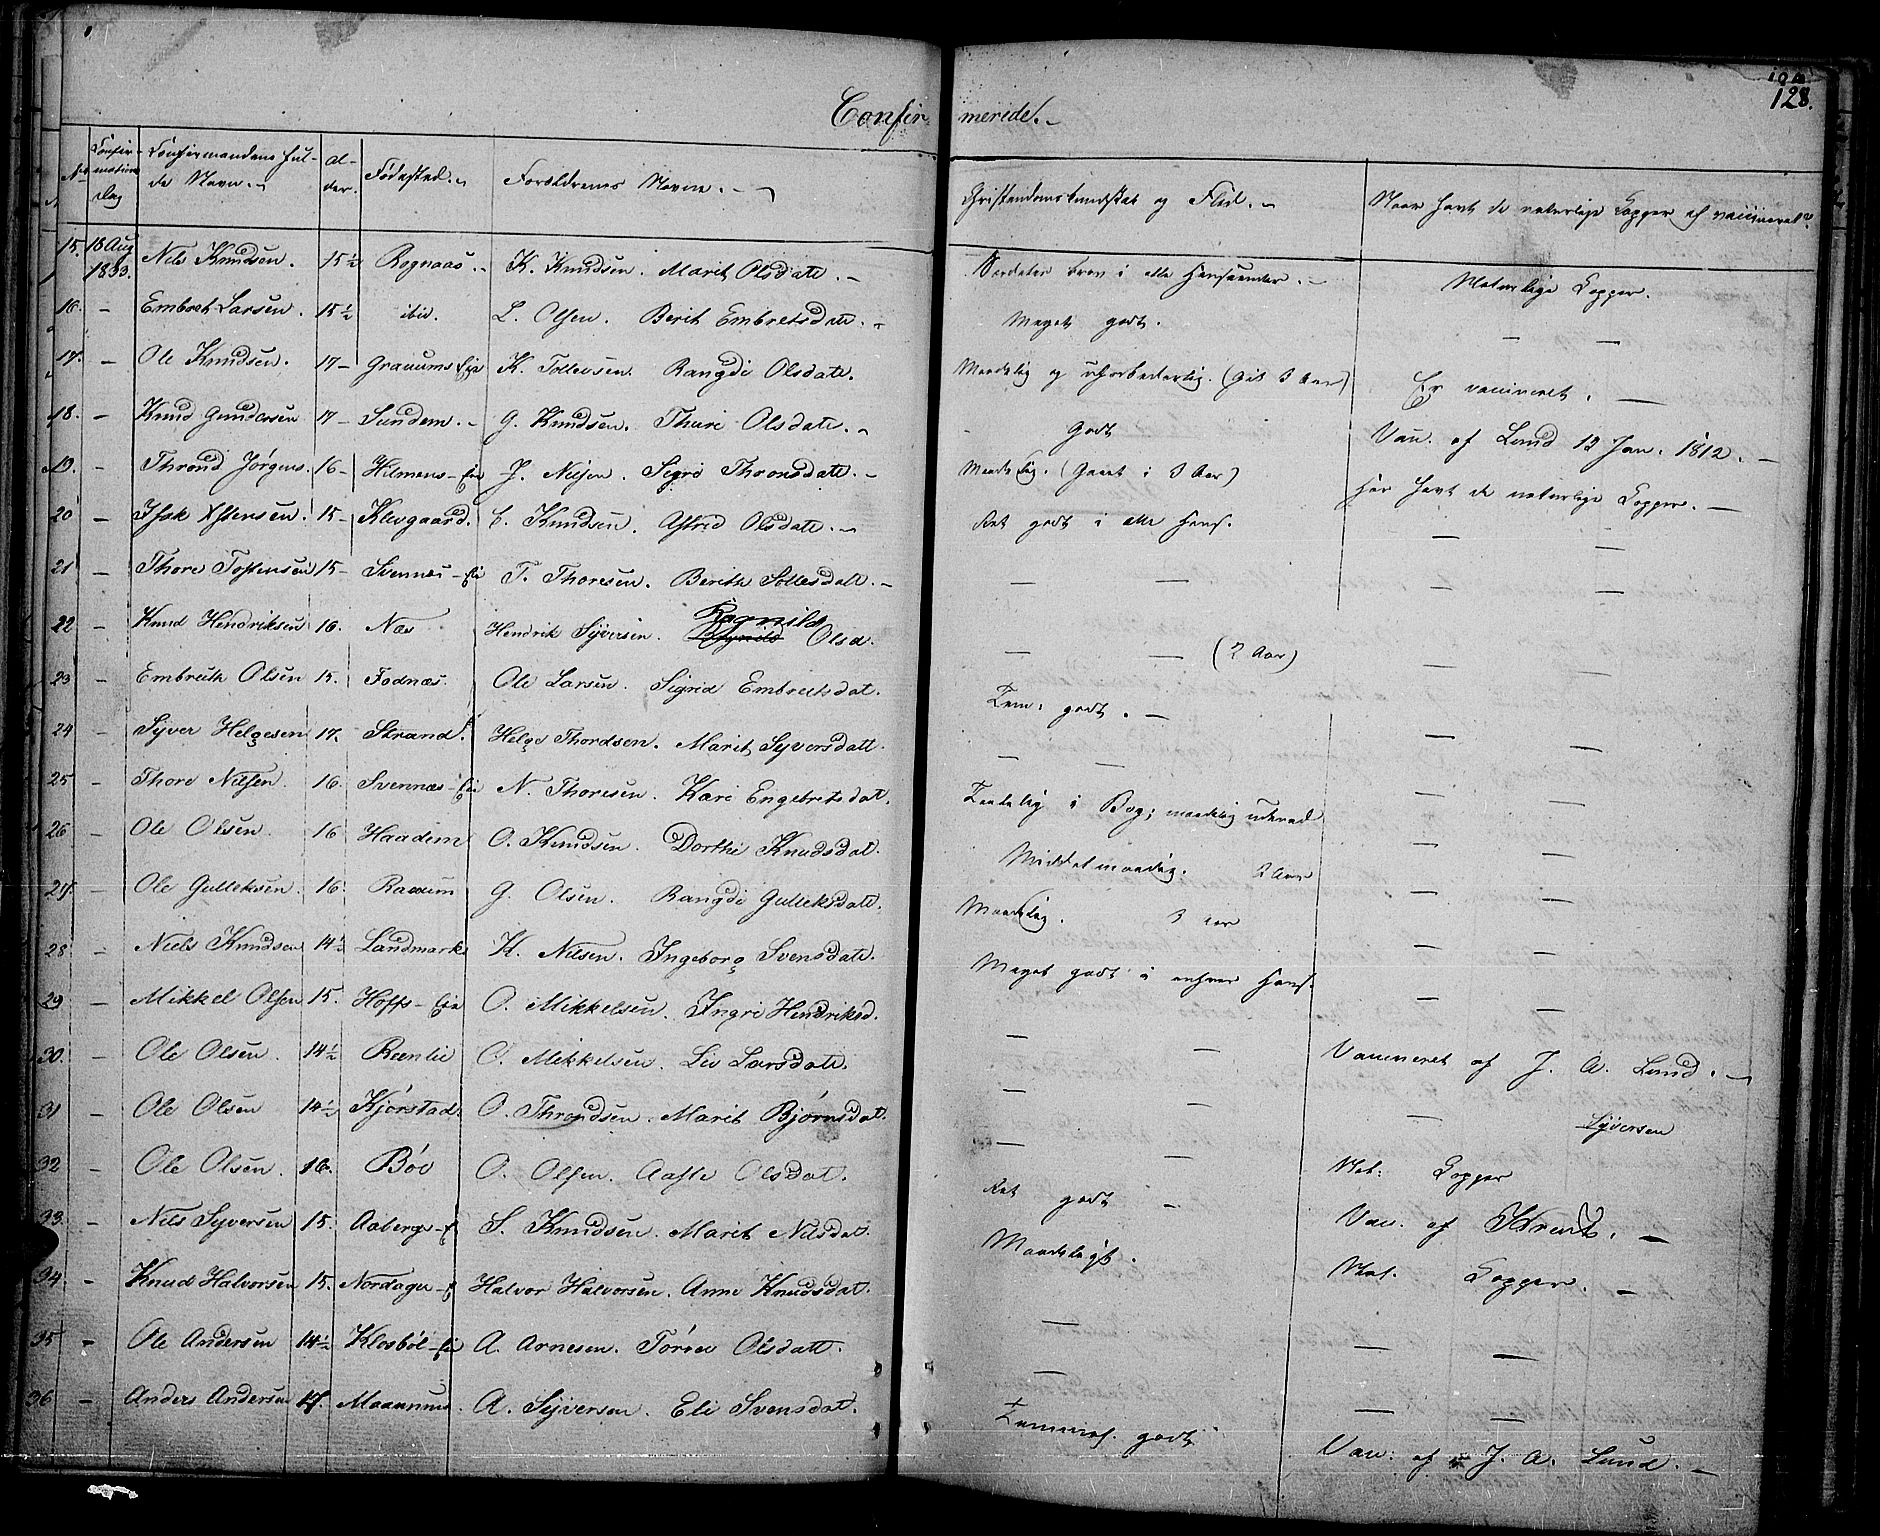 128.
Confirmerede.
No Confirmations Dag Confirmandens fulde Navn. Alder. Fødested. Forældrenes Navne. Christendomskundskab og Flid. Naar havt de naturlige Kopper el vaccineret?
15. 18 Aug 1833. Nils Knudsen. 15½ Rognaas. K. Knudsen. Marit Olsdatt. Særdeles brav i alle Henseender. Naturlige Kopper.
16. – Embret Larsen. 15½ ibid. L. Olsen. Berit Embretsdatt. Meget godt. – –
17. – Ole Knudsen. 17 – Eie K. Tollevsen. Rangdi Olsdatt. Maadelig og uforbederlig. (Gik 3 Aar) Er vaccineret. –
18. – Knud Gundersen 17 – Sundem. G. Knudsen. Thuri Olsdatt. – Godt Vacc. af Lund 12 Jan. 1812. –
19. – Thrond Jørgens. 16 – Hilmens-Eie J. Nilsen. Sigri Thronsdatt. – Maadelig. (Gaaet i 3 Aar) Har havt de naturlige Kopper. –
20 – Isak 15 – Klevgaard. Knudsen. Astrid Olsdatt. – Ret godt i alle Hens. – –
21 – Thore Tostensen 15 – Svennes-Eie T. Thoresen. Berithe Tollesdatt. – – – – –
22 – Knud Hendriksen 16. Næs Hendrik Syversen. Ragnild Olsd. – – (2 Aar) – –
23 – Embreth Olsen 15. Fodnæs. Ole Larsen. Sigrid Embretsdat. Tem: godt. – – –
24 – Syver Helgesen 17. Strand. Helge Thordsen. Marit Syversdatt. – – – –
25 – Thore Nilsen. 16. Svennæs-Eie N. Thoresen. Kari Engebretsdat. i Bog; maadelig udenad – –
26 – Ole Olsen. 16 Haadem O. Knudsen. Dorthe Knudsdat. Middelmaadig. 2 Aar – –
27. – Ole Gulleksen. 16. G. Olsen. Rangdi Gulleksdatt. Maadelig. 3 Aar – –
28 – Niels Knudsen 14½ Landmark K. Nilsen. Ingeborg Svensdatt. Meget godt i enhver Hens. – –
29 – Mikkel Olsen 15. Hoffs-Eie O. Mikkelsen. Ingri Hendriksd. – – – –
30. – Ole Olsen. 14½ Reenlie O. Mikkelsen. Liv Larsdatt. – – Vaccineret af J. A. Lund. –
31 – Ole Olsen 14½ Kjørstad. O. Throndsen. Marit Bjørnsdat. – – – Syversen
32 – Ole Olsen. 16. Bøe O. Olsen. Aaste Olsdat. Ret godt – Nat. Kopper
33. – Nils Syversen 15. Aaberge-E S. Knudsen. Marit Nilsdat. Maadeligt. Vac. af –
34. – Knud Halvorsen 15. Halvor Halvorsen. Anne Knudsdat. – Nat. Kopper. –
35 – Ole Andersen 14½ Klosbøl-Eie A. Arnesen. Olsdatt. – – –
36 – Anders Andersen 17. A. Syversen. Eli Svensdat. Temmel. godt – – Vac. af J. A. Lund. –